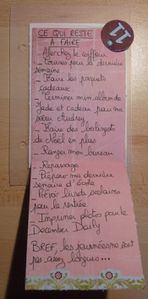 CE QUI RESTE
A FAIRE
11
_ Courses pour la dernière
semaine
_ Faire les paquets
cadeaux
_ Terminer mon album de
Jade et cadeau pour ma
sœur Audrey
_ Faire des badages
de Noël en plus
_ Ranger mon bureau
_ Repassage
_ Préparer ma dernière
semaine d'école
_ Prévoir livrets scolaires
pour la rentrée
_ Imprimer photos pour le
December Daily
BREF, les journées ne sont
pas assez longues...